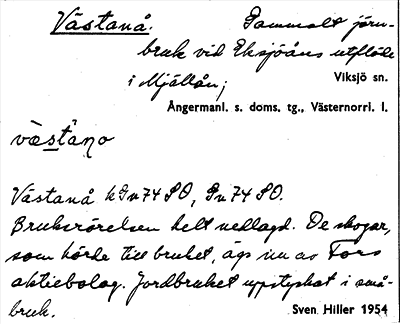 Västanå. Gammalt järn-
bruk vid Eksjöåns utflöde
i Mjällån;
Viksjö sn.
Ångermanl. s. doms. tg., Västernorrl. l.
västano
Västanå kGv74 SO, Gv74 SO.
Bruksrörelsen helt nedlagd. De skogar,
som hörde till bruket, ägs nu av Fors
aktiebolag. Jordbruket uppstyckat i små-
bruk.
Sven Hiller 1954